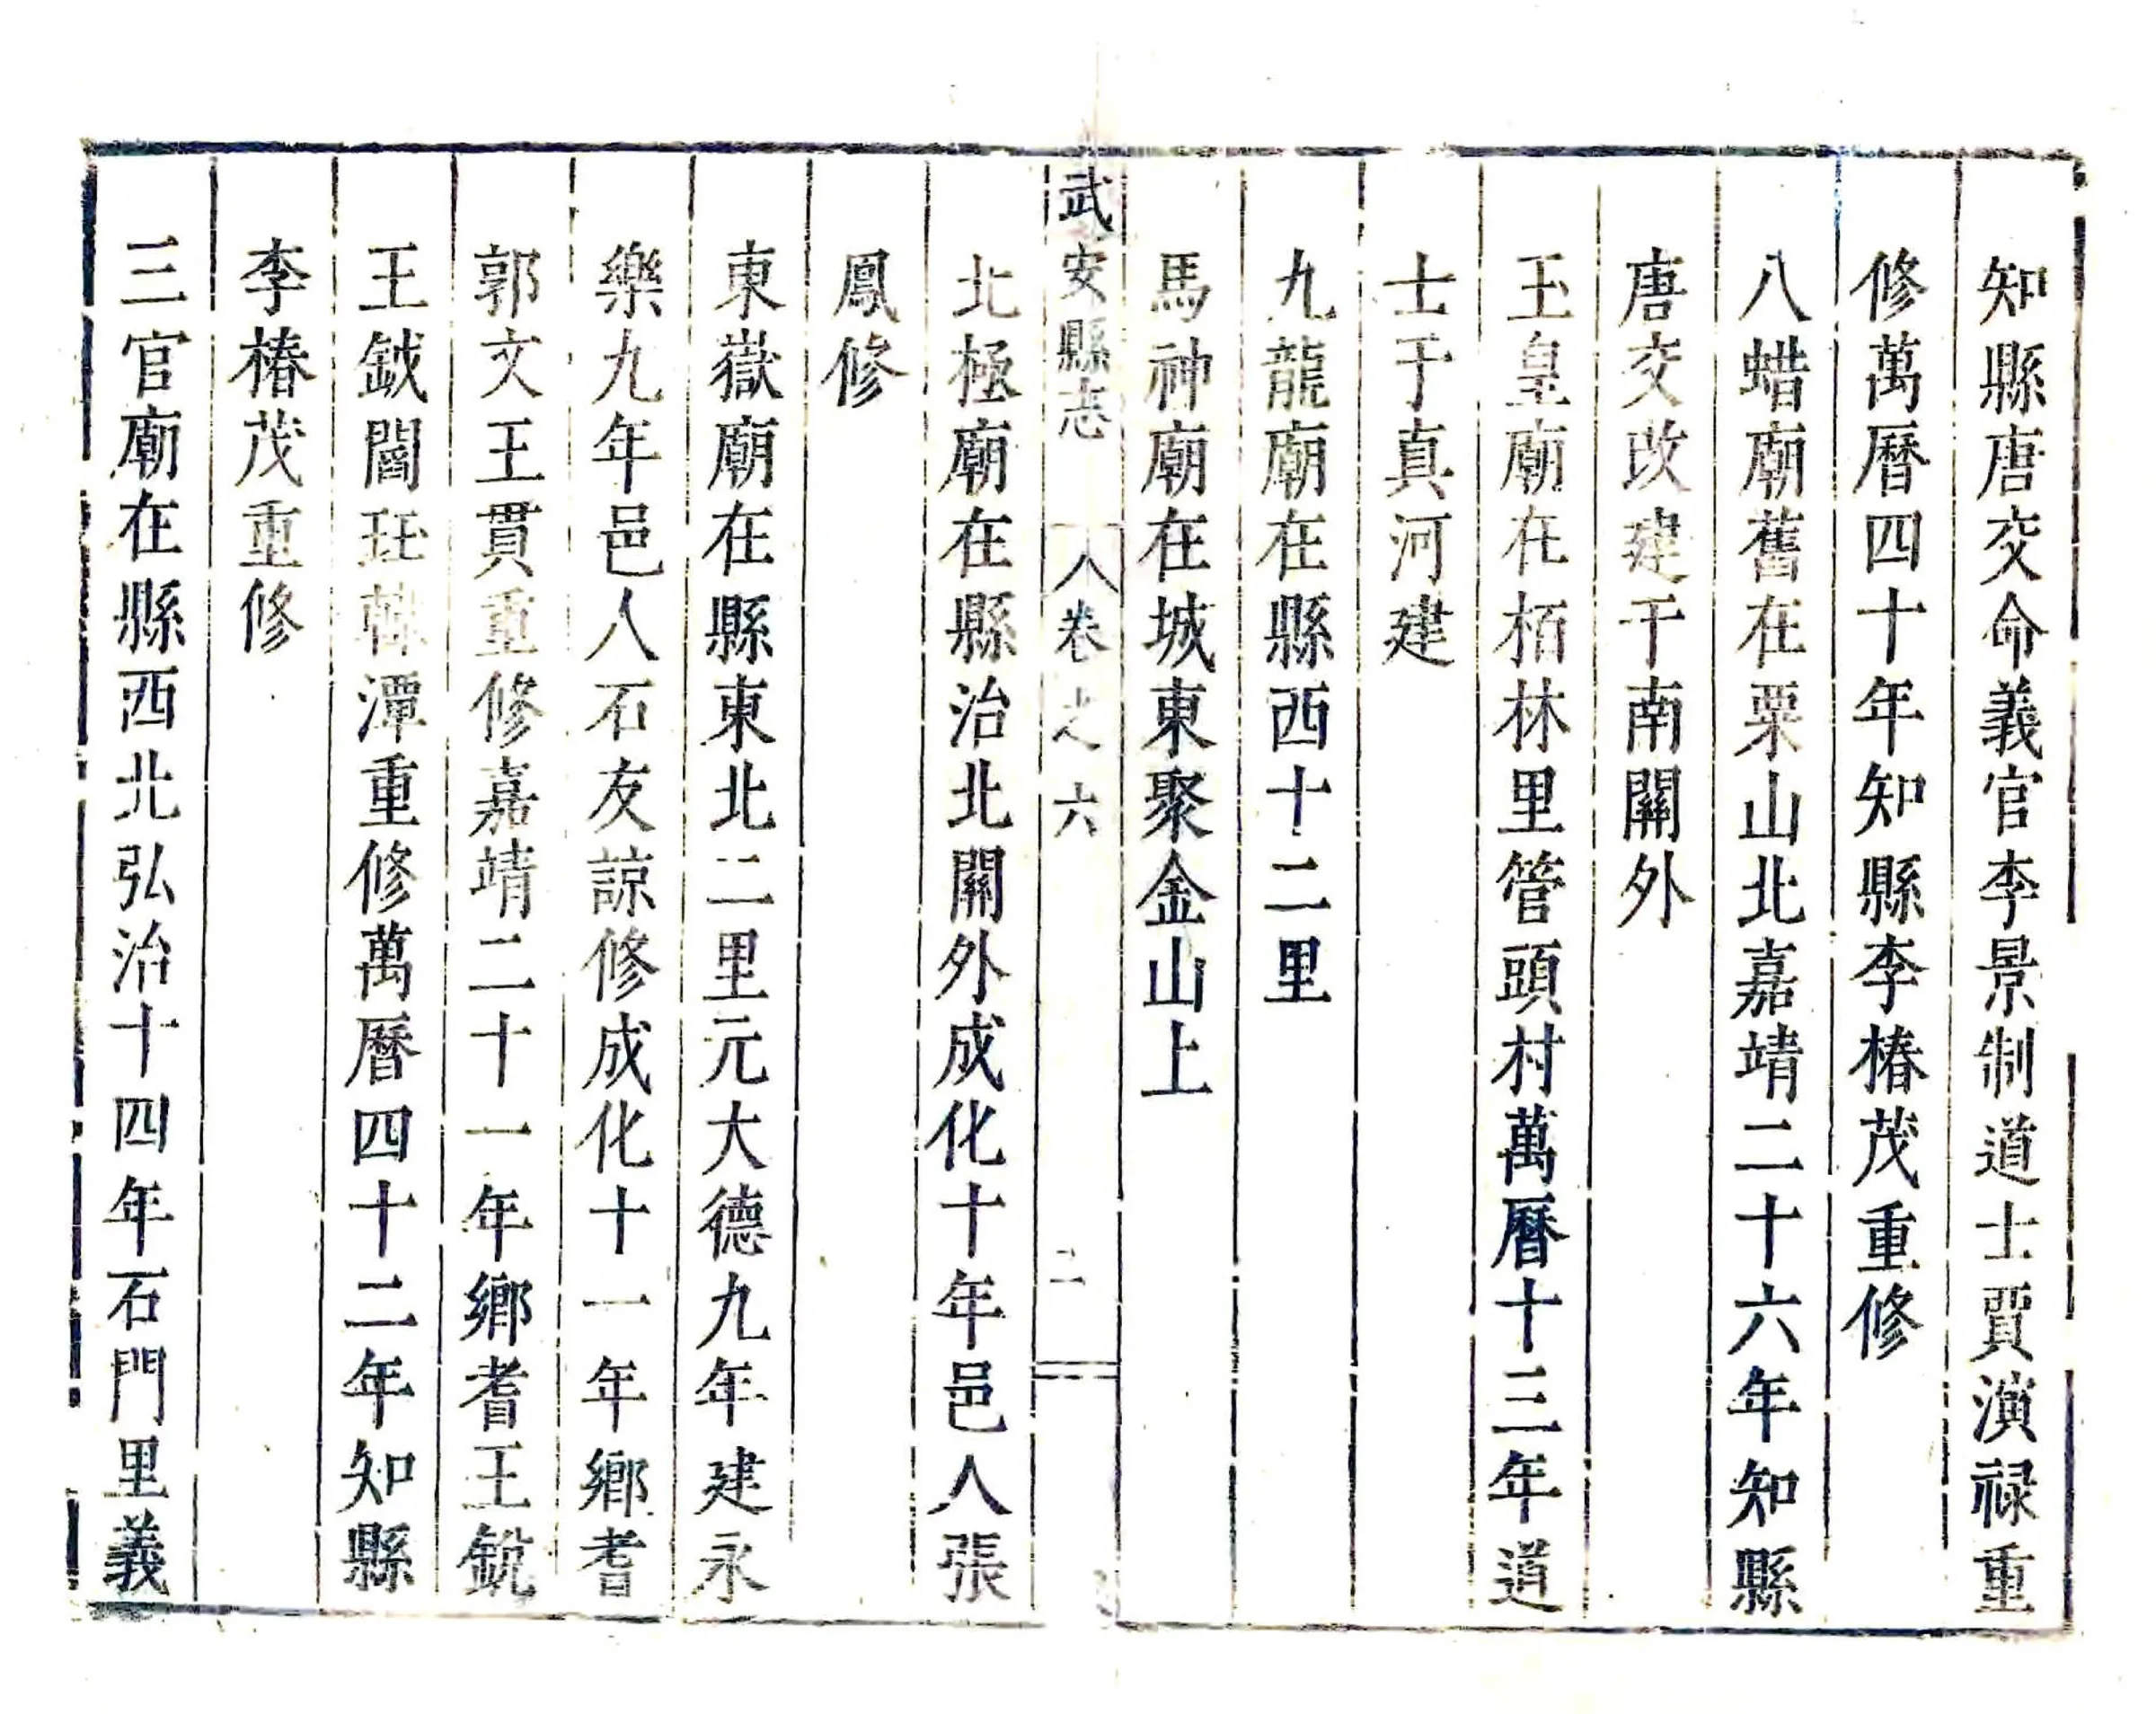 知縣唐交命義官李景制道士賈演禄重
修萬曆四十年知縣李椿茂重修
八蜡廟舊在粟山北嘉靖二十六年知縣
唐交改建于南關外
玉皇廟在栢林里管頭村萬曆十三年道
士于真河建
九龍廟在縣西十二里
馬神廟在城東聚金山上
武安縣志 卷之六 二
北極廟在縣治北關外成化十年邑人張
鳳修
東嶽廟在縣東北二里元大德九年建永
樂九年邑人石友諒修成化十一年鄉耆
郭文王貫重修嘉靖二十一年鄉耆王銳
王鉞閻玨韓潭重修萬曆四十二年知縣
李椿茂重修
三官廟在縣西北弘治十四年石門里義